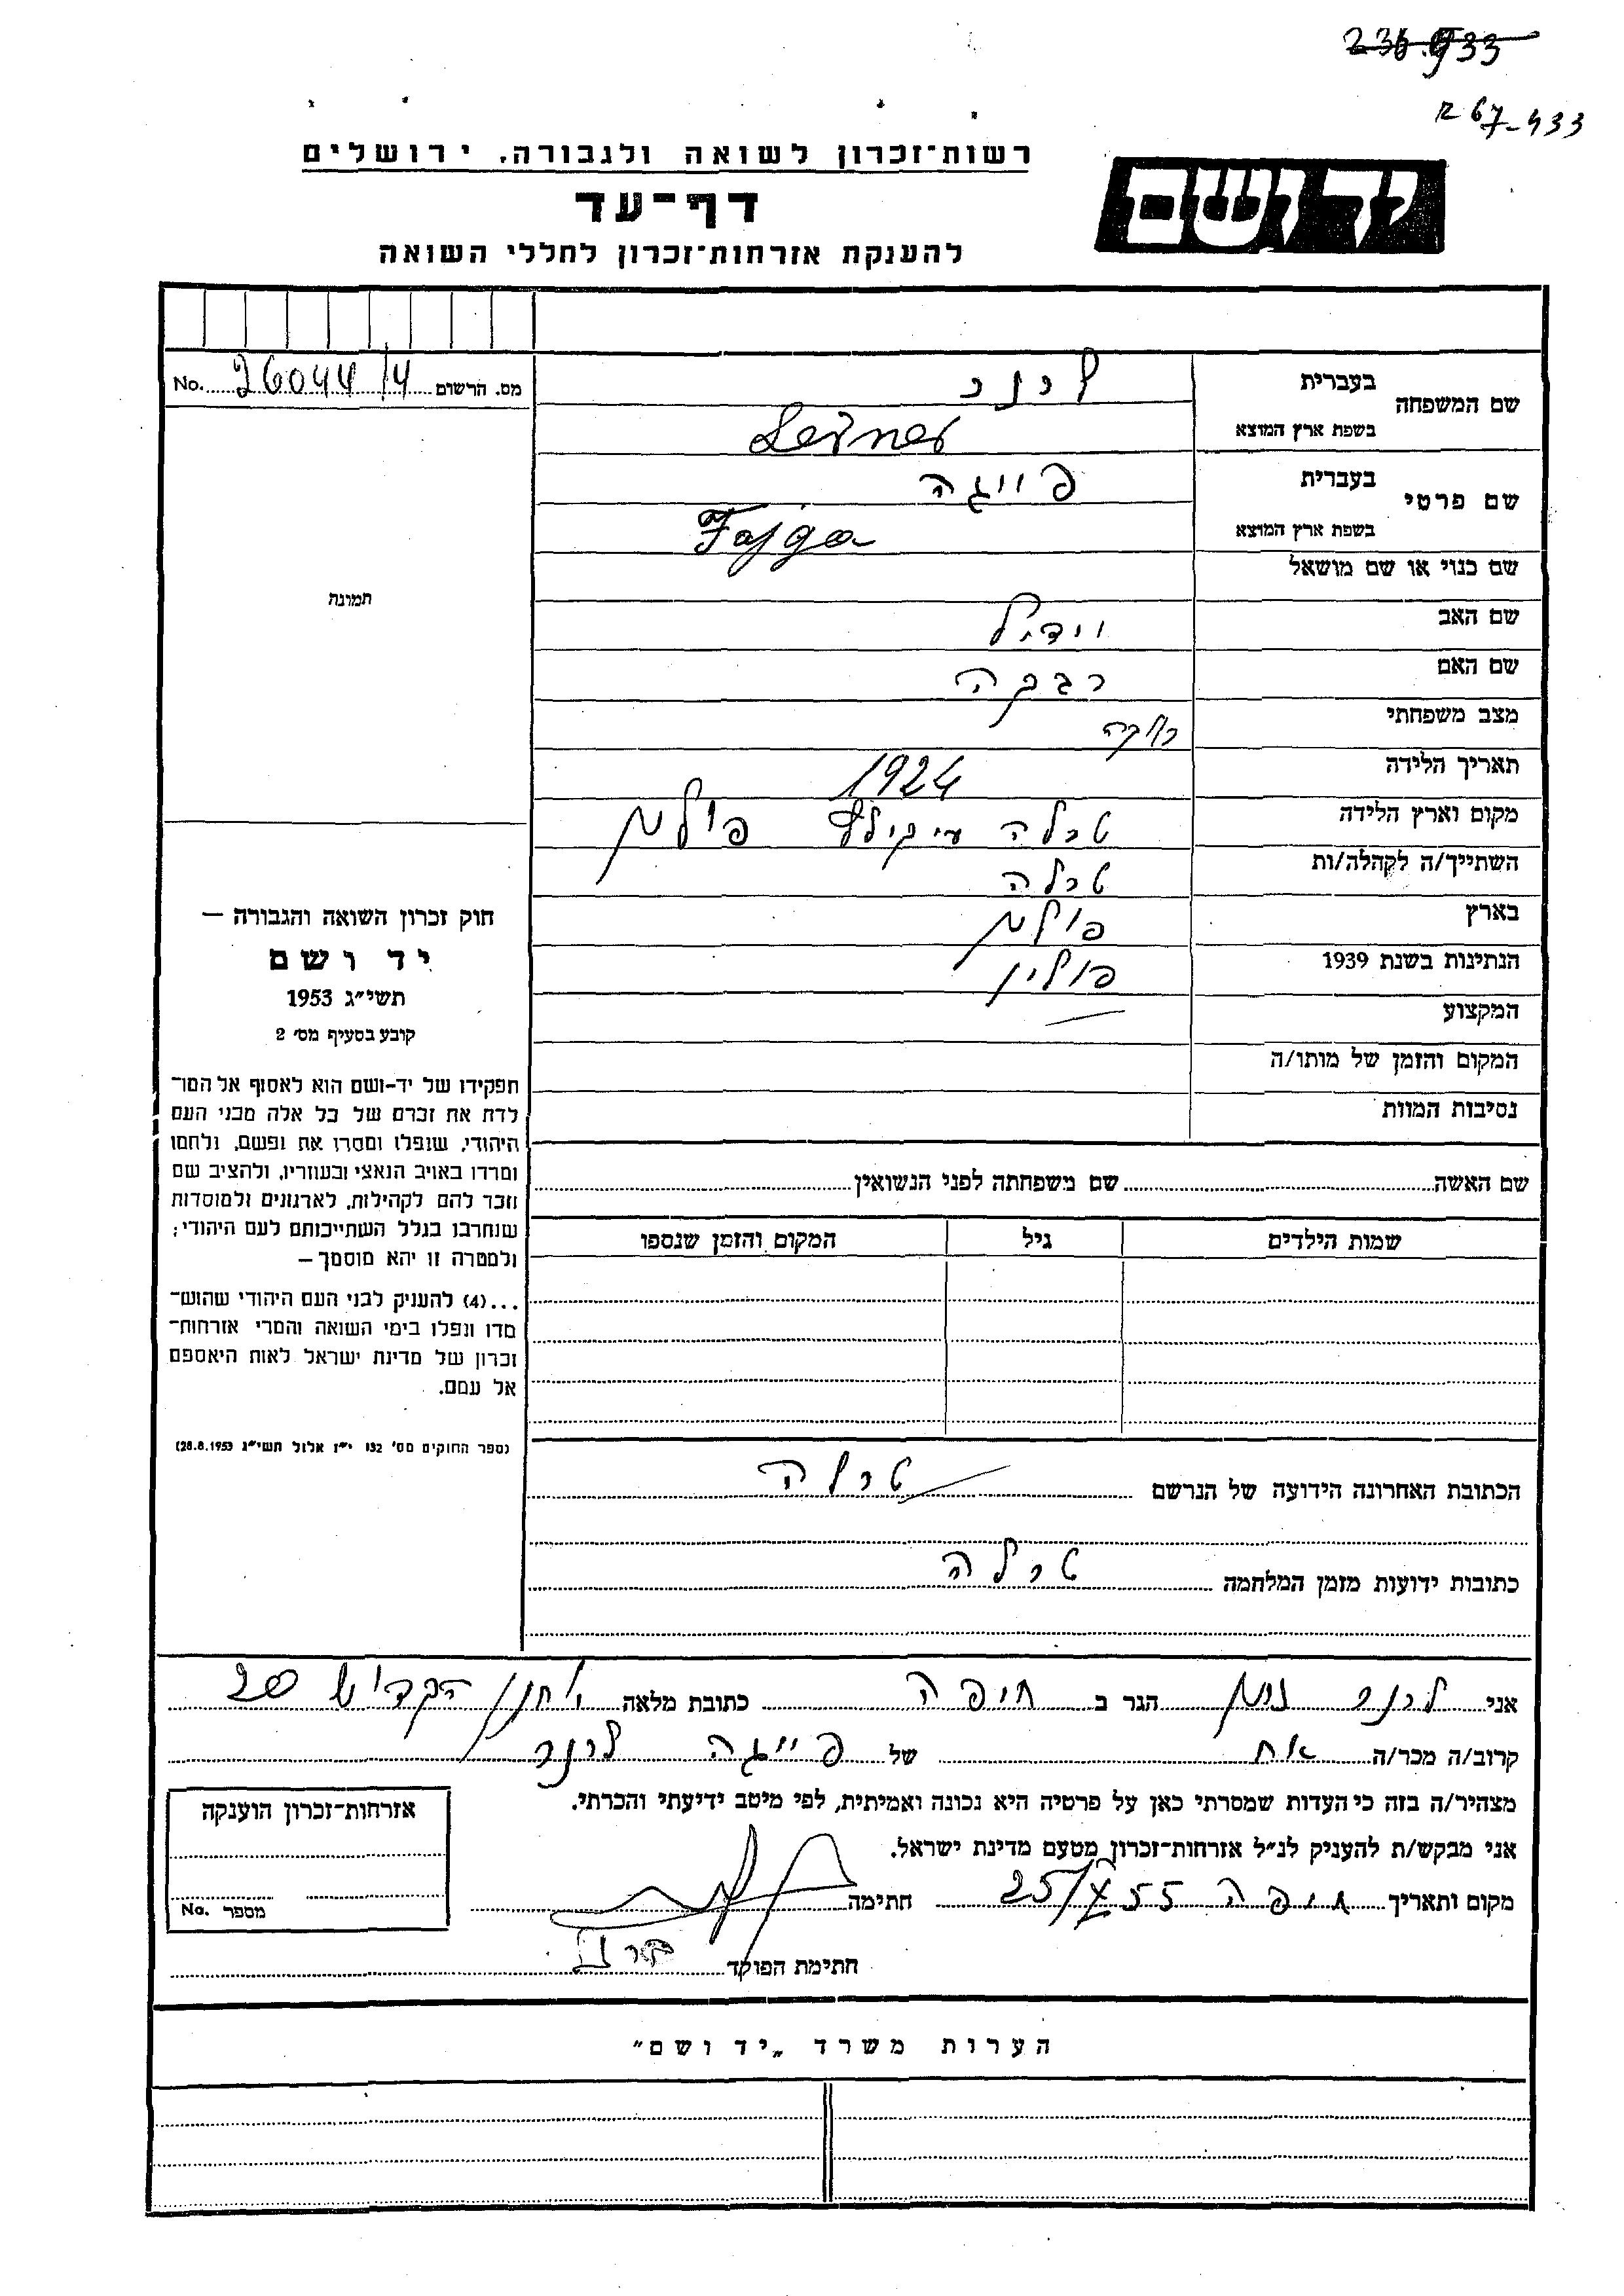 236.933
R 67-433
רשות־זכרון לשואה ולגבורה. ירושלים
יד ושם
דף־עד
להענקת אזרחות־זכרון לחללי השואה
מס. הרשום 26044/4 No.
שם המשפחה
בעברית לרנר
בשפת ארץ המוצא Lerner
שם פרטי
בעברית פייגה
בשפת ארץ המוצא Fajga
שם כנוי או שם מושאל
שם האב
שם האם רבקה
מצב משפחתי רווקה
תאריך הלידה 1924
מקום וארץ הלידה טרלה פולין
השתייך/ה לקהלה/ות טרלה
בארץ פולין
הנתינות בשנת 1939 פולין
המקצוע —
המקום והזמן של מותו/ה
נסיבות המוות
תמונה
חוק זכרון השואה והגבורה —
יד ושם
תשי״ג 1953
קובע בסעיף מס׳ 2
תפקידו של יד-ושם הוא לאסוף אל המו־
לדת את זכרם של כל אלה מבני העם
היהודי, שנפלו ומסרו את נפשם, נלחמו
ומרדו באויב הנאצי ובעוזריו, ולהציב שם
וזכר להם לקהילות, לארגונים ולמוסדות
שנחרבו בגלל השתייכותם לעם היהודי;
ולמטרה זו יהא מוסמך —
...(4) להעניק לבני העם היהודי שהוש־
מדו ונפלו בימי השואה והמרי אזרחות־
זכרון של מדינת ישראל לאות היאספם
אל עמם.
(ספר החוקים מס׳ 132 י״ז אלול תשי״ג 28.8.1953)
שם האשה שם משפחתה לפני הנשואין
שמות הילדים גיל המקום והזמן שנספו
הכתובת האחרונה הידועה של הנרשם טרלה
כתובות ידועות מזמן המלחמה טרלה
אני לרנר נתן הגר ב חיפה כתובת מלאה יוחנן הקדוש 20
קרוב/ה מכר/ה אח של פייגה לרנר
מצהיר/ה בזה כי העדות שמסרתי כאן על פרטיה היא נכונה ואמיתית, לפי מיטב ידיעתי והכרתי.
אני מבקש/ת להעניק לנ״ל אזרחות־זכרון מטעם מדינת ישראל.
מקום ותאריך חיפה 25/X 55 חתימה
חתימת הפוקד
אזרחות־זכרון הוענקה
מספר No.
הערות משרד „יד ושם״